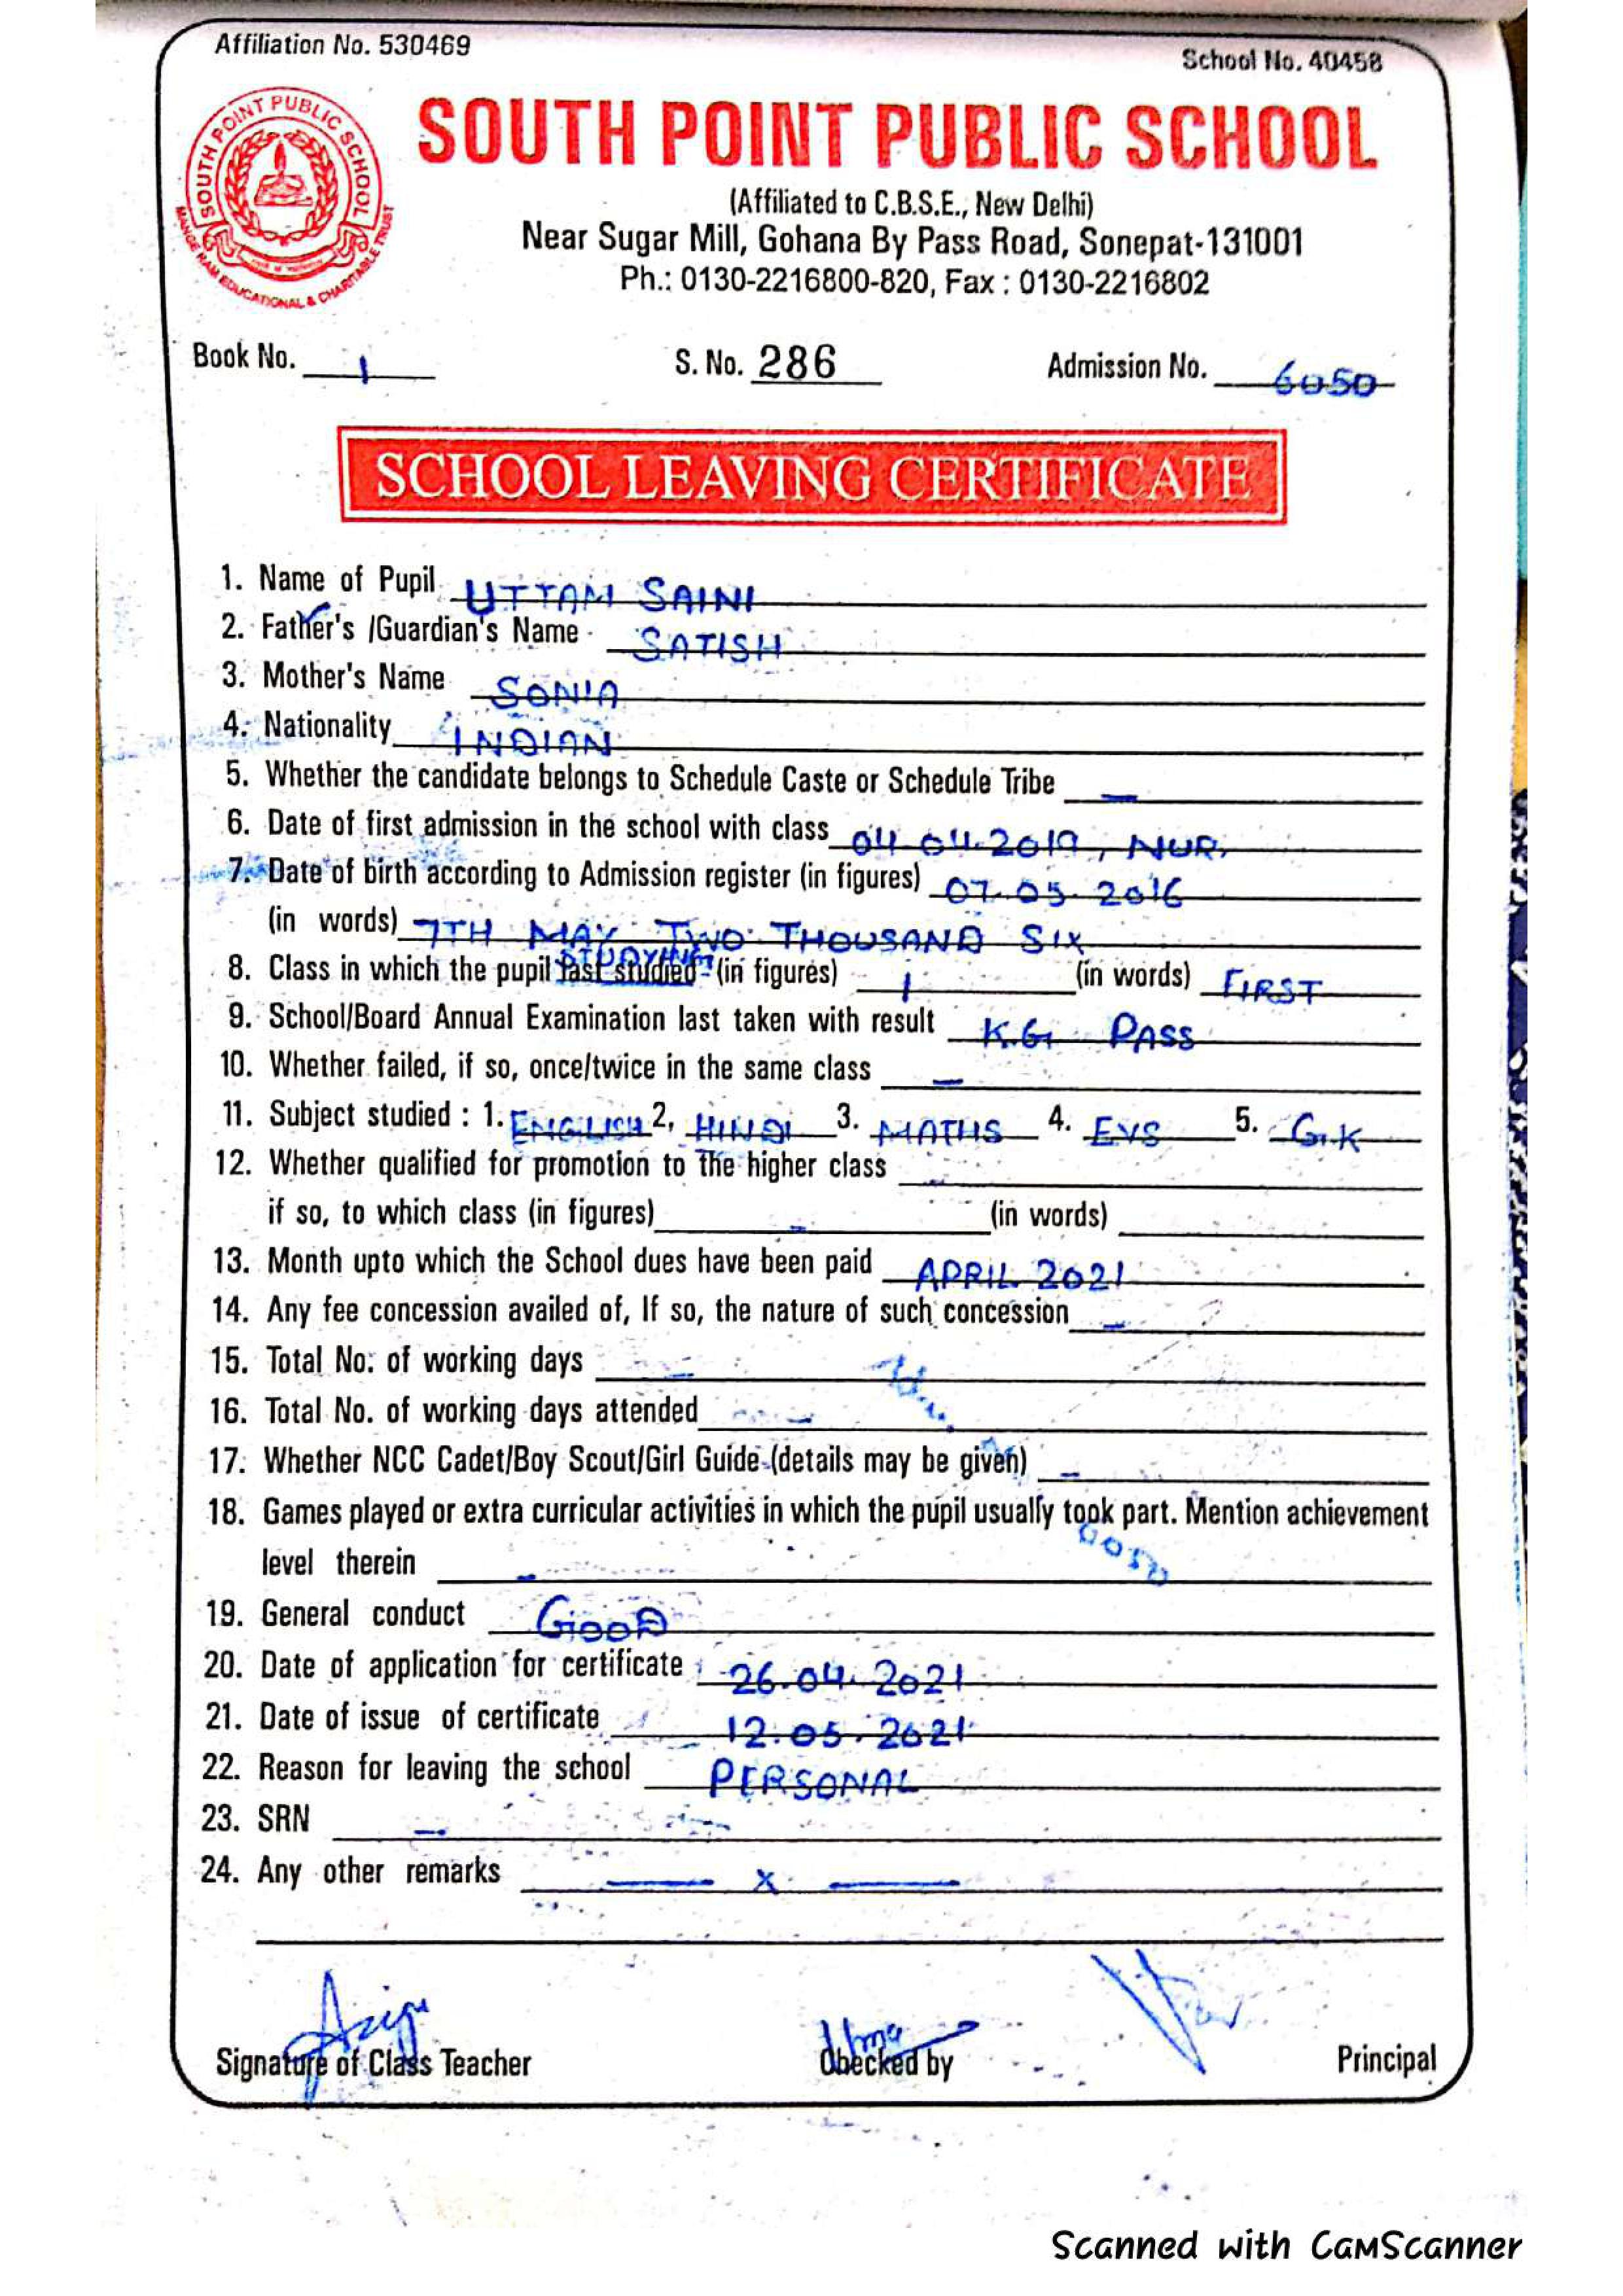 Affiliation No. 530469
School No. 40458
SOUTH POINT PUBLIC SCHOOL
SOUTH POINT PUBLIC SCHOOL
MANGE RAM EDUCATIONAL & CHARITABLE TRUST
(Affiliated to C.B.S.E., New Delhi)
Near Sugar Mill, Gohana By Pass Road, Sonepat-131001
Ph.: 0130-2216800-820, Fax : 0130-2216802
Book No. 1 S. No. 286 Admission No. 6050
SCHOOL LEAVING CERTIFICATE
1. Name of Pupil UTTAM SAINI
2. Father's /Guardian's Name SATISH
3. Mother's Name SONIA
4. Nationality INDIAN
5. Whether the candidate belongs to Schedule Caste or Schedule Tribe –
6. Date of first admission in the school with class 04.04.2019, NUR.
7. Date of birth according to Admission register (in figures) 07.05.2016
(in words) 7TH MAY TWO THOUSAND SIX
STUDYING
8. Class in which the pupil last studied (in figures) 1 (in words) FIRST
9. School/Board Annual Examination last taken with result K.G PASS
10. Whether failed, if so, once/twice in the same class –
11. Subject studied : 1. ENGLISH 2. HINDI 3. MATHS 4. EVS 5. G.K
12. Whether qualified for promotion to the higher class –
if so, to which class (in figures) – (in words)
13. Month upto which the School dues have been paid APRIL 2021
14. Any fee concession availed of, If so, the nature of such concession –
15. Total No. of working days –
16. Total No. of working days attended –
17. Whether NCC Cadet/Boy Scout/Girl Guide (details may be given) –
18. Games played or extra curricular activities in which the pupil usually took part. Mention achievement
level therein –
19. General conduct GOOD
20. Date of application for certificate 26.04.2021
21. Date of issue of certificate 12.05.2021
22. Reason for leaving the school PERSONAL
23. SRN –
24. Any other remarks — x —
Signature of Class Teacher Checked by Principal
Scanned with CamScanner